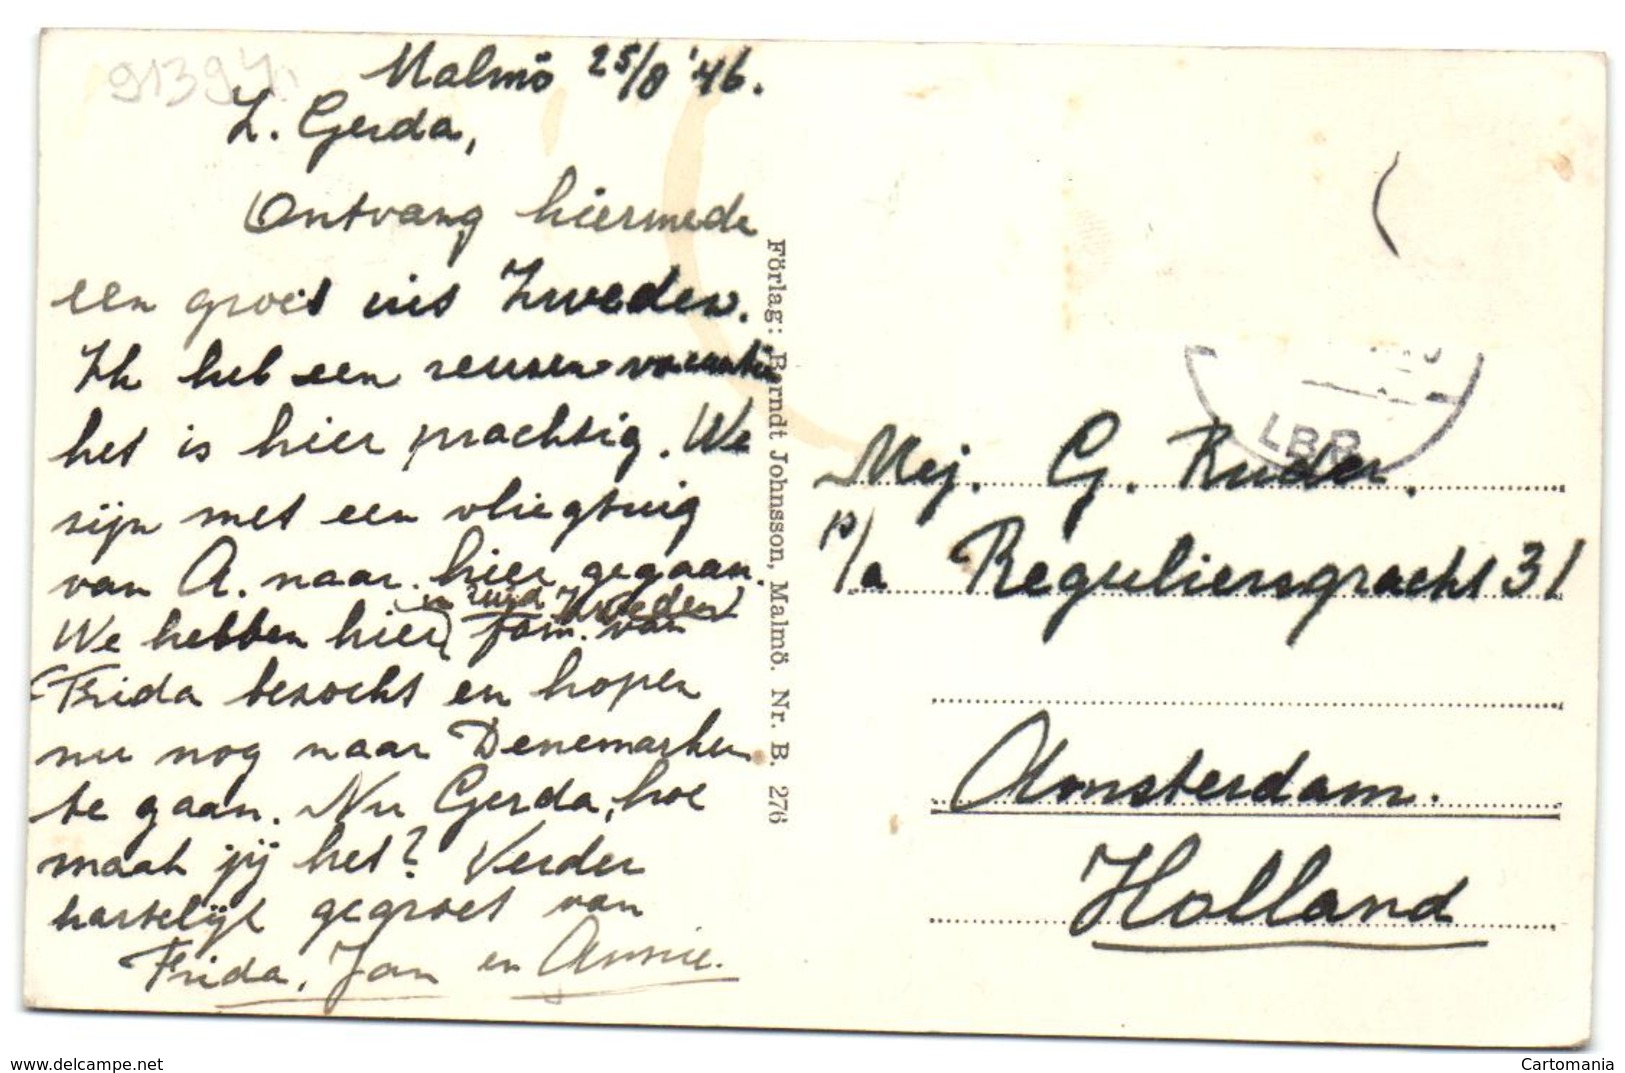 91394
Malmö 25/8 '46.
L. Gerda,
Ontvang hiermede
een groet uit Zweden.
Ik heb een reuzen vacantie
het is hier prachtig. We
zijn met een vliegtuig
van A. naar hier gegaan.
We hebben hier (in zuid Zweden) fam. van
Frida bezocht en hopen
nu nog naar Denemarken
te gaan. Nu Gerda, hoe
maak jij het? Verder
hartelijk gegroet van
Frida, Jan en Annie.
Förlag: Berndt Johnsson, Malmö. Nr. B. 276
LBR
Mej. G. Ruder.
p/a Reguliersgracht 31
Amsterdam.
Holland
www.delcampe.net
Cartomania